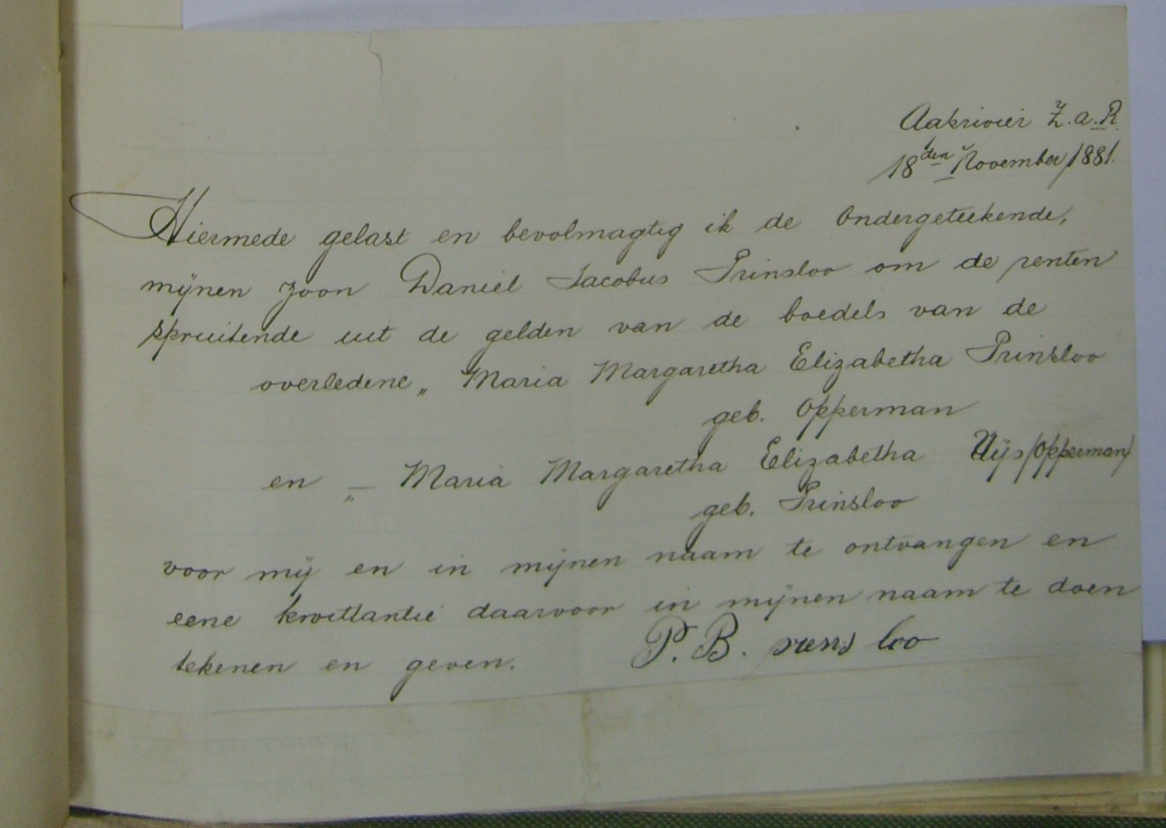 Aakrivier Z.a.R.
18den November/1881.
Hiermede gelast en bevolmagtig ik de Ondergeteekende,
mijnen zoon Daniël Jacobus Prinsloo om de renten
spruitende uit de gelden van de boedels van de
overledene „ Maria Margaretha Elizabetha Prinsloo
geb. Opperman
en „ — Maria Margaretha Elizabetha (Opperman)
geb. Prinsloo
voor mij en in mijnen naam te ontvangen en
eene kwitlantie daarvoor in mijnen naam te doen
tekenen en geven. P. B. rens loo